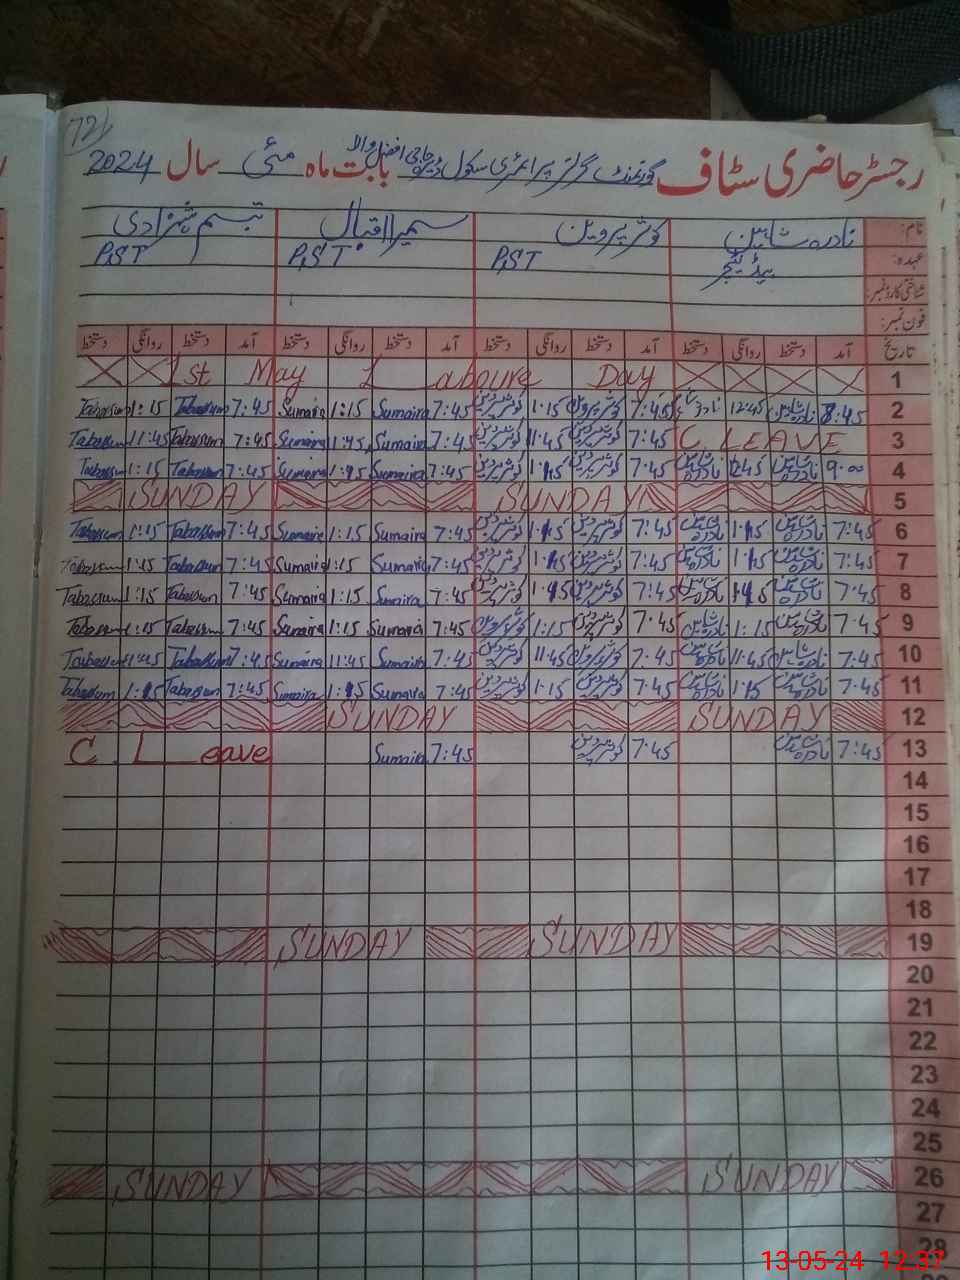 72
رجسٹر حاضری سٹاف گورنمنٹ گرلز پرائمری سکول ڈیرہ حاجی افضل والا بابت ماہ مئی سال 2024
نام: نادرہ شاہین کوثر پروین سمیرا اقبال تبسم شہزادی
عہدہ: ہیڈ ٹیچر P.ST P.ST P.ST
شناختی کارڈ نمبر:
فون نمبر:
تاریخ آمد دستخط روانگی دستخط آمد دستخط روانگی دستخط آمد دستخط روانگی دستخط آمد دستخط روانگی دستخط
1st May Laboure Day 1
Tabassum 1:15 Tabassum 7:45 Sumaira 1:15 Sumaira 7:45 کوثر پروین 1:15 کوثر پروین 7:45 نادرہ شاہین 12:45 نادرہ شاہین 8:45 2
Tabassum 11:45 Tabassum 7:45 Sumaira 11:45 Sumaira 7:45 کوثر پروین 11:45 کوثر پروین 7:45 C. LEAVE 3
Tabassum 1:15 Tabassum 7:45 Sumaira Sumaira 7:45 کوثر پروین کوثر پروین 7:45 نادرہ شاہین 12:45 نادرہ شاہین 9:00 4
SUNDAY SUNDAY 5
Tabassum 1:15 Tabassum 7:45 Sumaira 1:15 Sumaira 7:45 کوثر پروین کوثر پروین 7:45 نادرہ شاہین نادرہ شاہین 7:45 6
Tabassum 1:15 Tabassum 7:45 Sumaira 1:15 Sumaira 7:45 کوثر پروین کوثر پروین 7:45 نادرہ شاہین نادرہ شاہین 7:45 7
Tabassum 1:15 Tabassum 7:45 Sumaira 1:15 Sumaira 7:45 کوثر پروین کوثر پروین 7:45 نادرہ شاہین نادرہ شاہین 7:45 8
Tabassum 1:15 Tabassum 7:45 Sumaira 1:15 Sumaira 7:45 کوثر پروین 1:15 کوثر پروین 7:45 نادرہ شاہین 1:15 نادرہ شاہین 7:45 9
Tabassum 11:45 Tabassum 7:45 Sumaira 11:45 Sumaira 7:45 کوثر پروین 11:45 کوثر پروین 7:45 نادرہ شاہین 11:45 نادرہ شاہین 7:45 10
Tabassum 1:15 Tabassum 7:45 Sumaira 1:15 Sumaira 7:45 کوثر پروین 1:15 کوثر پروین 7:45 نادرہ شاہین 1:15 نادرہ شاہین 7:45 11
SUNDAY SUNDAY 12
C. Leave Sumaira 7:45 کوثر پروین 7:45 نادرہ شاہین 7:45 13
14
15
16
17
18
SUNDAY SUNDAY 19
20
21
22
23
24
25
SUNDAY SUNDAY 26
27
28
13-05-24 12:37